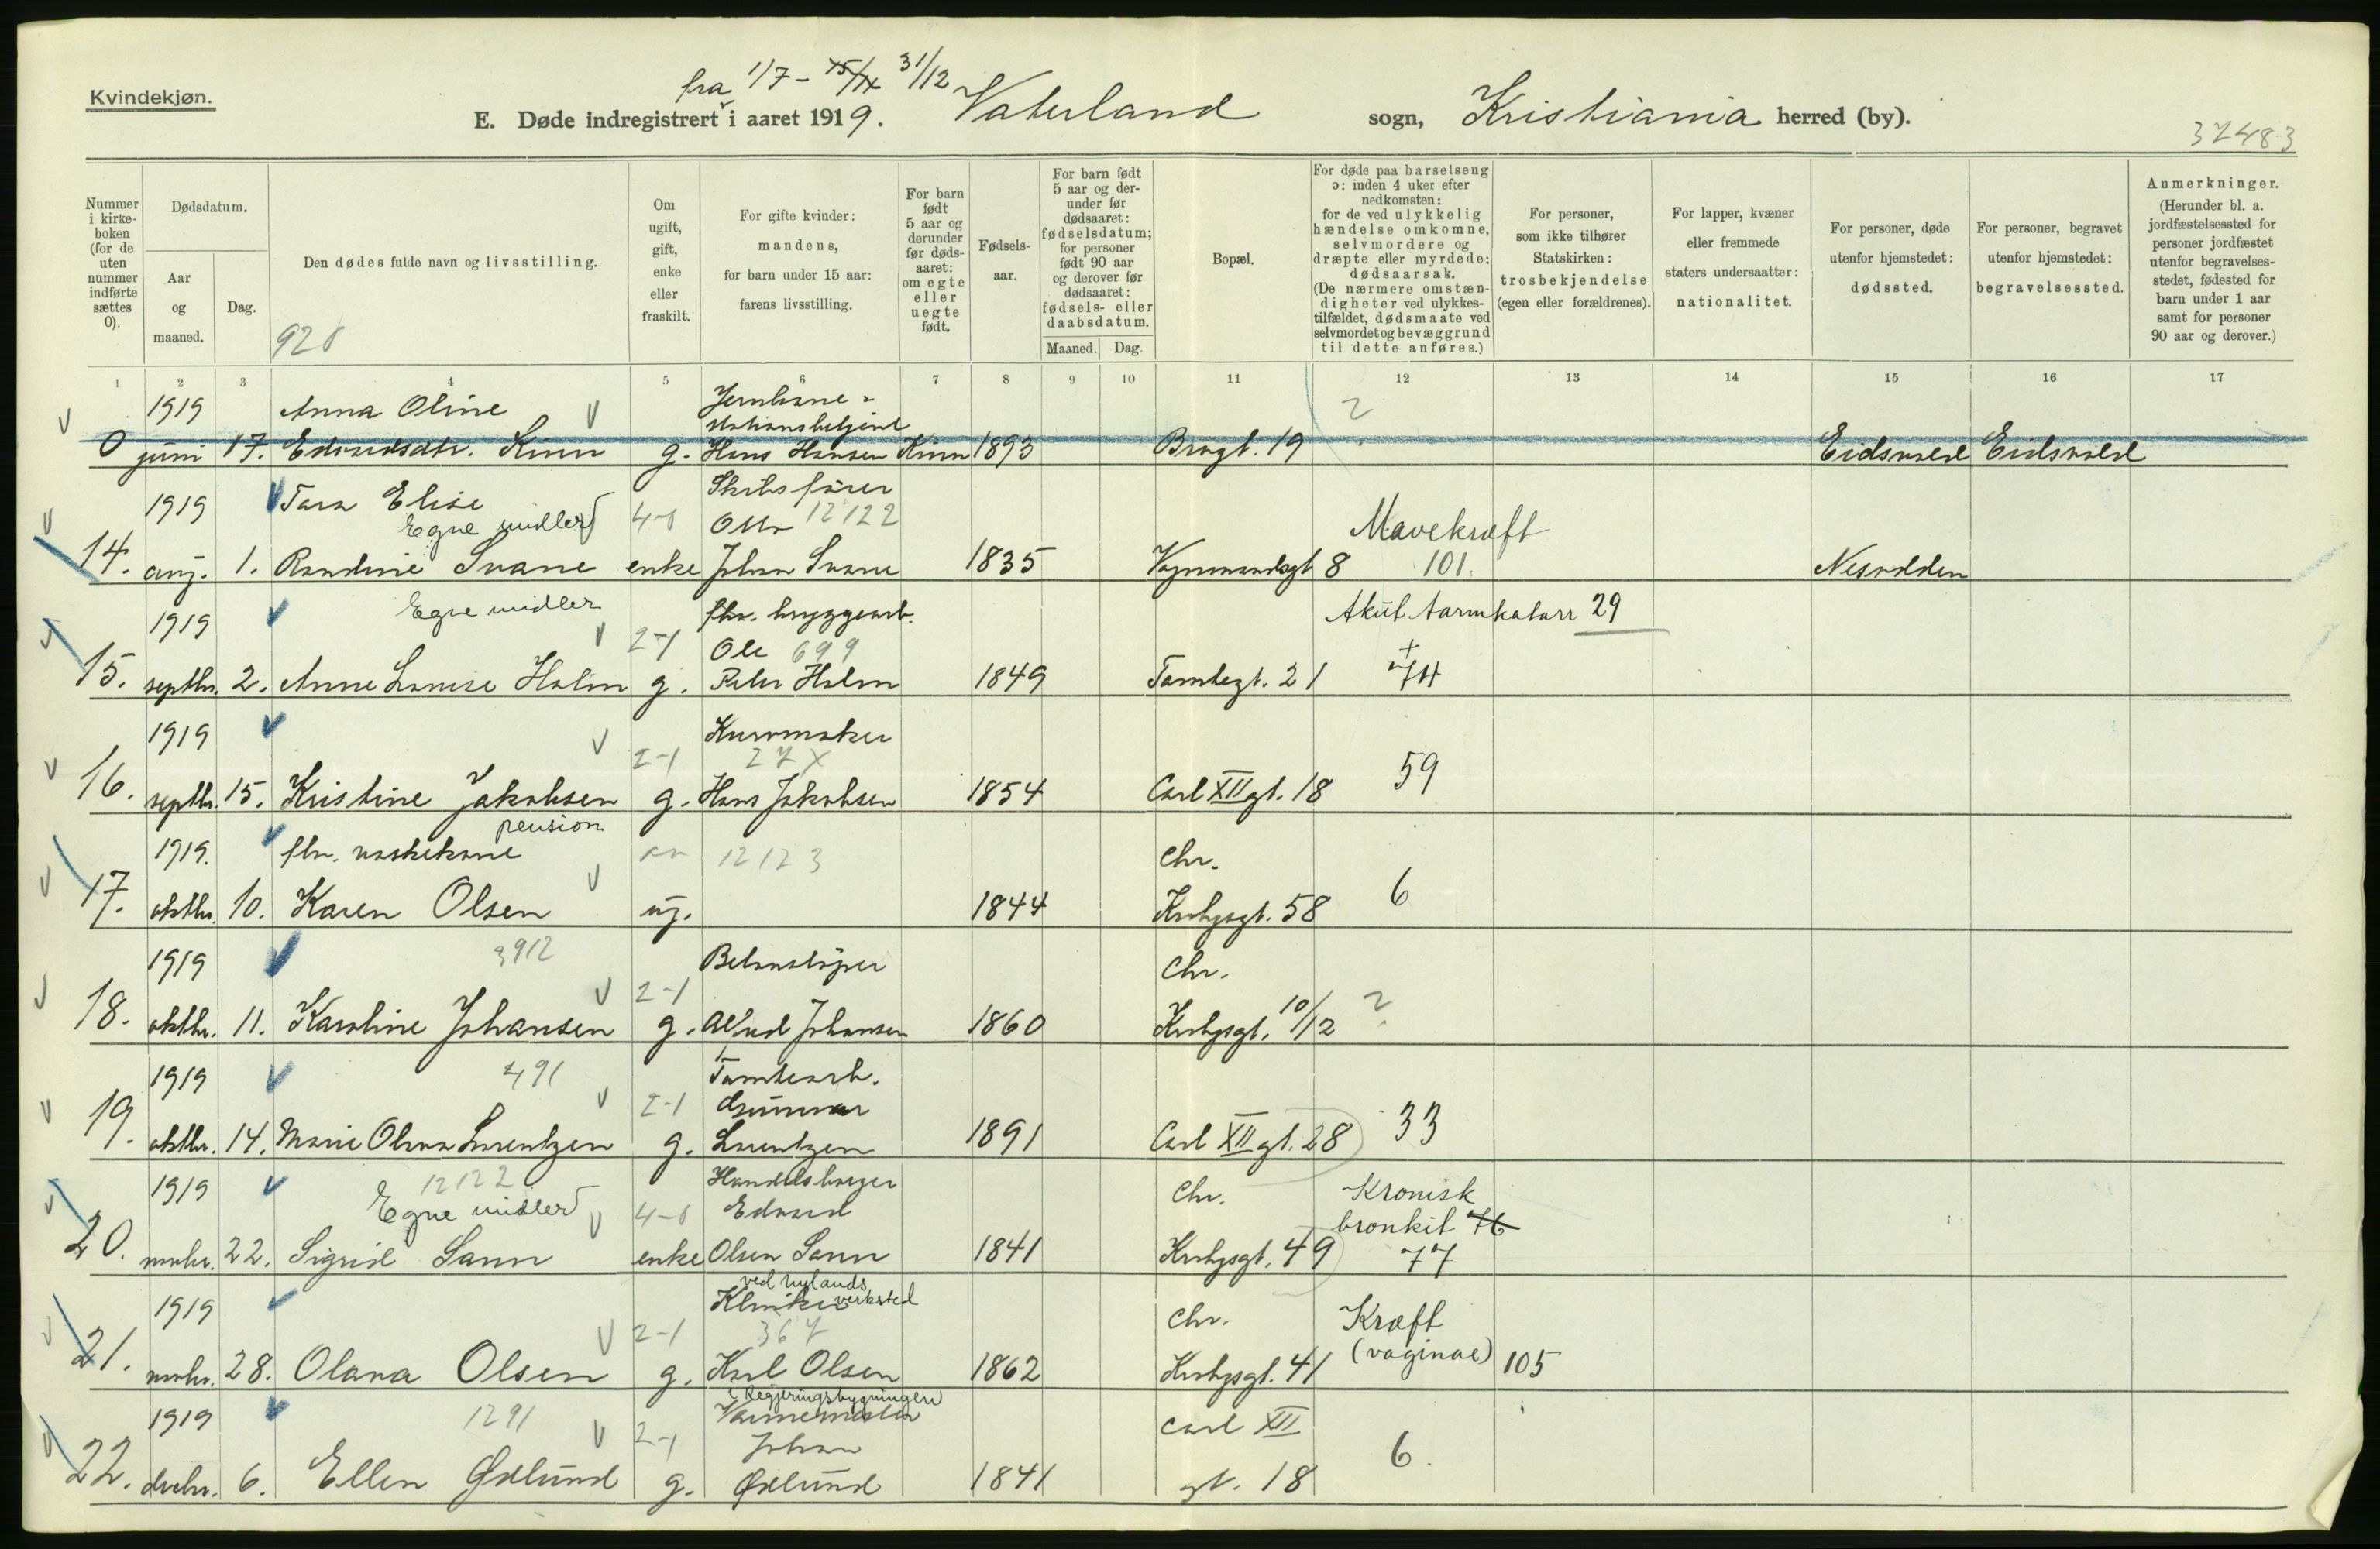 Kvindekjøn.
fra 1/7 - 15/11 31/12
E. Døde indregistrert i aaret 1919. Vaterland sogn, Kristiania herred (by).
37483
Nummer i kirke-boken (for de uten nummer indførte sættes 0).
Dødsdatum.
Aar og maaned.
Dag.
Den dødes fulde navn og livsstilling.
928
Om ugift, gift, enke eller fraskilt.
For gifte kvinder: mandens, for barn under 15 aar: farens livsstilling.
For barn født 5 aar og derunder før døds-aaret: om egte eller uegte født.
Fødsels-aar.
For barn født 5 aar og der-under før dødsaaret: fødselsdatum; for personer født 90 aar og derover før dødsaaret: fødsels- eller daabsdatum.
Maaned. Dag.
Bopæl.
For døde paa barselseng ɔ: inden 4 uker efter nedkomsten: for de ved ulykkelig hændelse omkomne, selvmordere og dræpte eller myrdede: dødsaarsak. (De nærmere omstæn-digheter ved ulykkes-tilfældet, dødsmaate ved selvmord et og bevæggrund til dette anføres.)
For personer, som ikke tilhører Statskirken: trosbekjendelse (egen eller forældrenes).
For lapper, kvæner eller fremmede staters undersaatter: nationalitet.
For personer, døde utenfor hjemstedet: dødssted.
For personer, begravet utenfor hjemstedet: begravelsessted.
Anmerkninger. (Herunder bl. a. jordfæstelsessted for personer jordfæstet utenfor begravelses-stedet, fødested for barn under 1 aar samt for personer 90 aar og derover.)
1 2 3 4 5 6 7 8 9 10 11 12 13 14 15 16 17
1919 Anna Oline Jernbane- ?
stationsbetjent
0 juni 17. Edvardsdtr. Kinn g. Hans Hansen Kinn 1893 Brugt. 19 Eidsvold Eidsvold
1919 Tara Elise Skibsfører
Egne midler 4-0 Otto 12122 Mavekræft
14. aug. 1. Randine Svane enke Johan Svane 1835 Vognmandsgt 8 101. Nesodden
1919 Egne midler fhv. bryggearb. Akut tarmkatarr 29
2-1 Ole 699
15. septbr. 2. Anne Lovise Holm g. Peter Holm 1849 Tomtegt. 21 74
1919 Kurvmaker
2-1 27X 59
16. septbr. 15. Kristine Jakobsen g. Hans Jakobsen 1854 Carl XII gt. 18
pension
1919. fhv. vaskekone 12123 Chr.
17. oktbr. 10. Karen Olsen ug. 1844 Krohgsgt. 58 6
1919 3912 Betonstøper Chr.
2-1
18. oktbr. 11. Karoline Johansen g. Alfred Johansen 1860 Krohgsgt. 10/12 ?
1919 491 Tomtearb.
2-1 Gunnar 33
19. oktbr. 14. Marie Olava Lorentzen g. Lorentzen 1891 Carl XII gt. 28
1919 12122 Handelsborger Chr. Kronisk
Egne midler 4-0 Edvard bronkit 76
20. novbr. 22. Sigrid Sann enke Olsen Sann 1841 Krohgsgt. 49 77
ved nylands
1919 Klinker verksted Chr. Kræft
2-1 367 (vaginae) 105
21. novbr. 28. Olava Olsen g. Karl Olsen 1862 Krohgsgt. 41
(Regjeringsbygningen)
1919 1291 Varmemester Carl XII
2-1 Johan 6.
22. decbr. 6. Ellen Ødlund g. Ødlund 1841 gt. 18